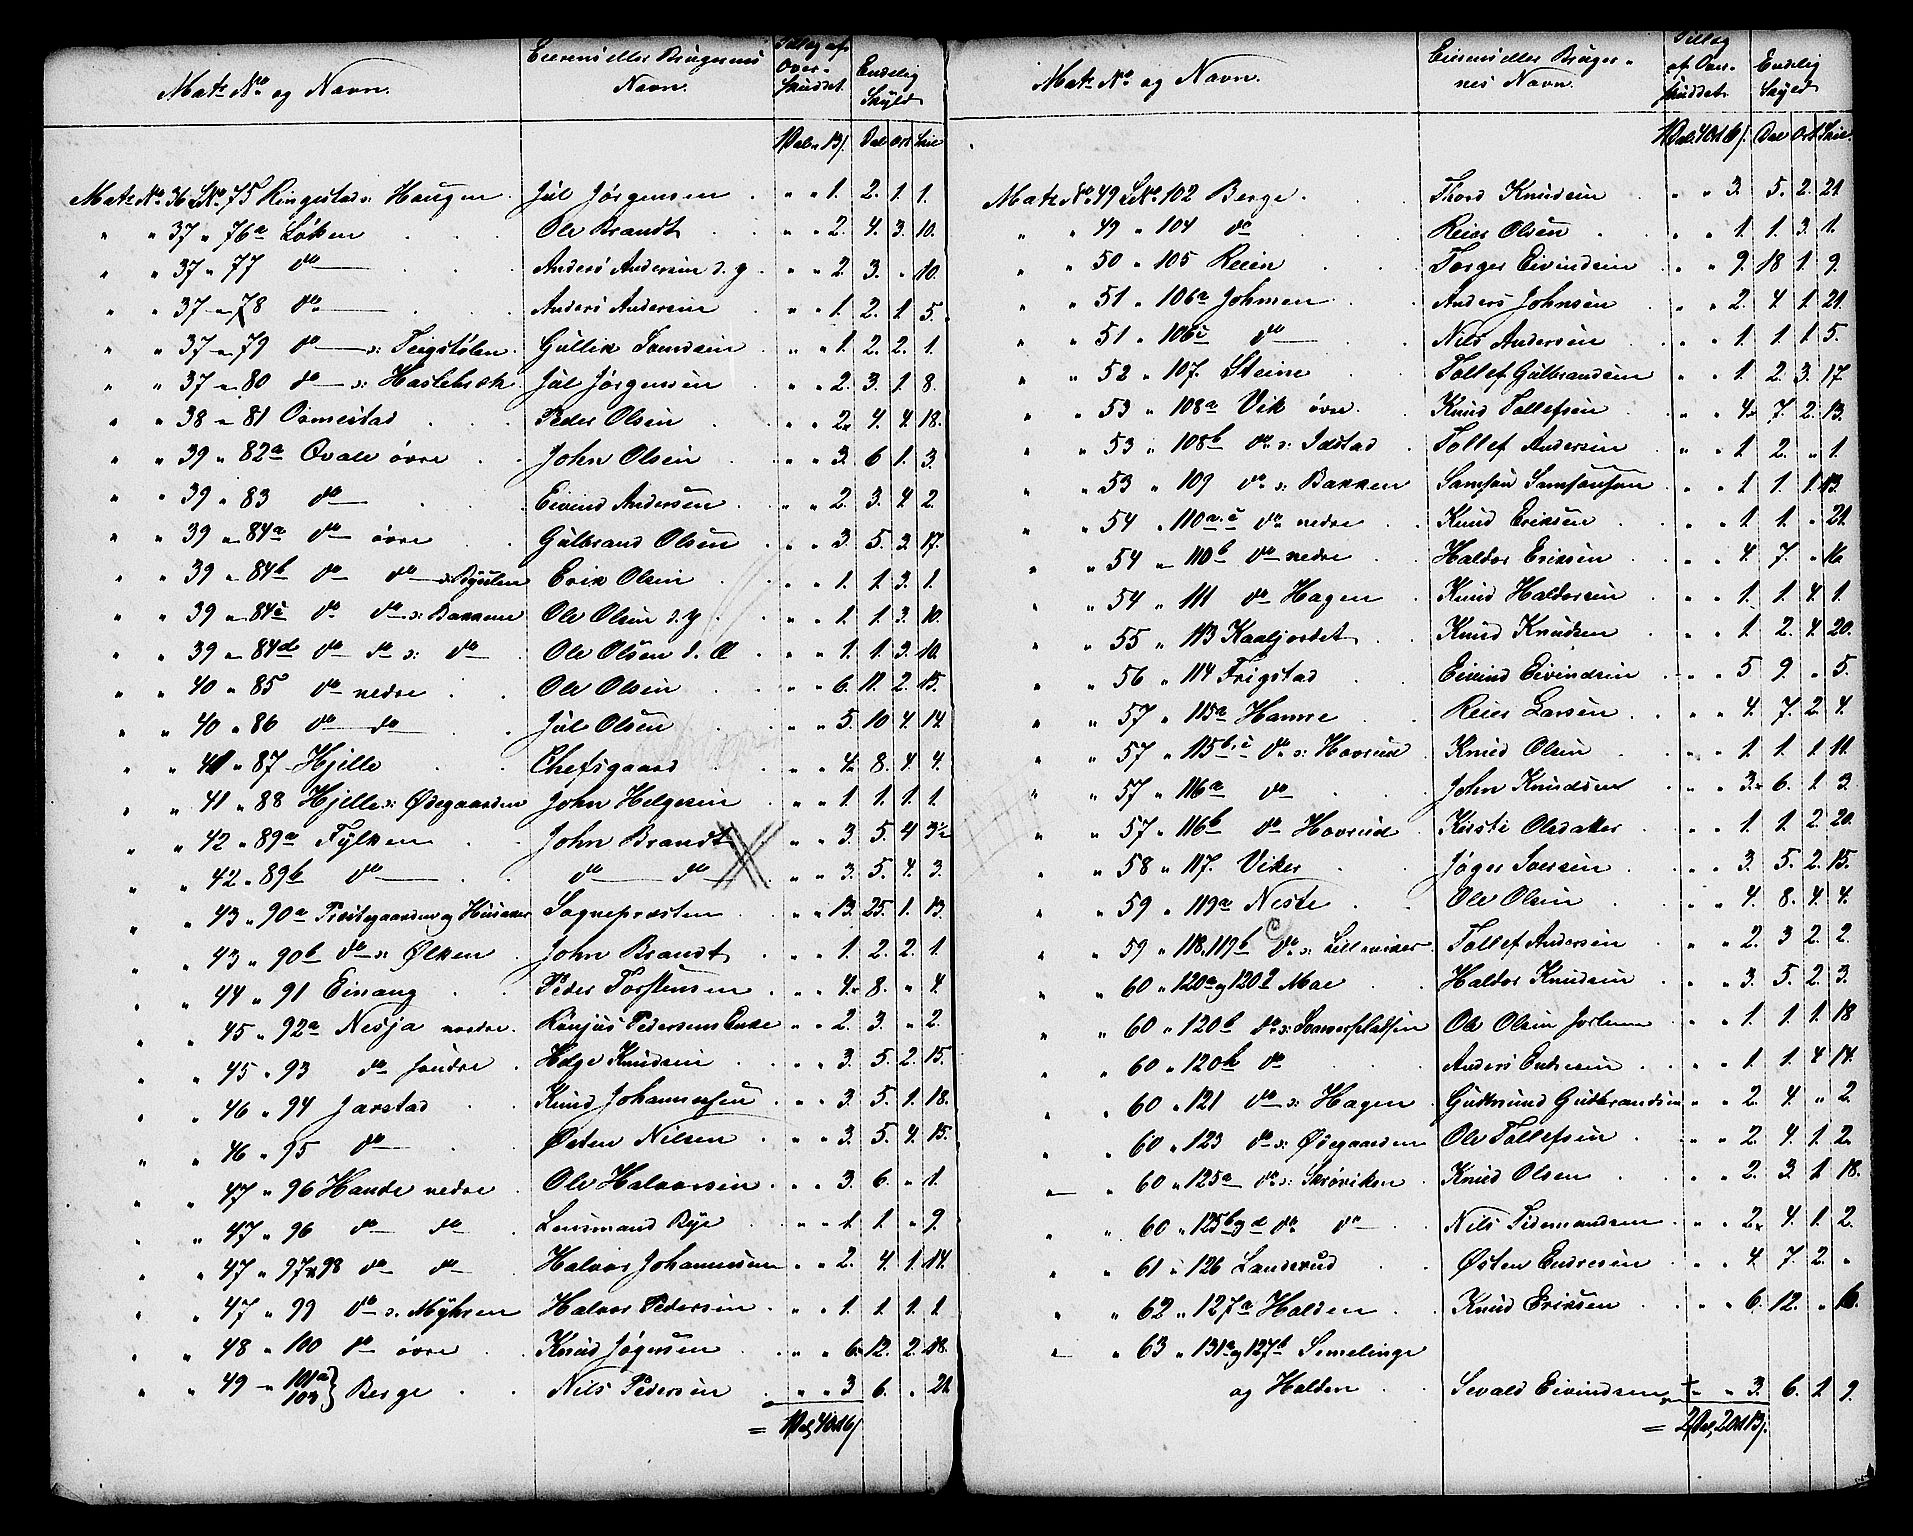 Matr No og Navn.
Eierens eller Brugerens Navn.
Tillæg af Overskuddet
Endelig Skyld
1 Dal. " 13 ß. Dal Ort Skil
Matr No 36 LNo 75 Ringestad s: Haugen Jul Jørgensen " " 1. 2. 1. 1.
" " 37 " 76a Løken Ole Brandt " " 2. 4. 3. 10.
" " 37 " 77 do Anders Andersen d. y. " " 2. 3. " 10.
" " 37 " 78 do Anders Andersen " " 1. 2. 1. 5.
" " 37 " 79 do s: Tergstølen Gullik Svendsen " " 1. 2. 2. 1.
" " 37 " 80 do s: Haslebræk Jul Jørgensen " " 2. 3. 1. 8.
" " 38 " 81 Ormestad Peder Olsen " " 2. 4. 4. 18.
" " 39 " 82a Qvale øvre John Olsen " " 3. 6. 1. 3.
" " 39 " 83 do Eivind Andersen " " 2. 3. 4. 2.
" " 39 " 84a do øvre Gulbrand Olsen " " 3. 5. 3. 17.
" " 39 " 84b do do s: Erik Olsen " " 1. 1. 3. 1.
" " 39 " 84c do do s: Bakkene Ole Olsen d. y. " " 1. 1. 3. 10.
" " 39 " 84d do do s: do Ole Olsen d. Æ " " 1. 1. 3. 10.
" " 40 " 85 do nedre Ole Olsen " " 6. 11. 2. 15.
" " 40 " 86 do do Jul Olsen " " 5. 10 4. 14.
" " 41 " 87 Hjelle Chefsgaard " " 4. 8. 4. 4.
" " 41 " 88 Hjelle s: Ødegaarden John Helgesen " " 1. 1. 1. 1.
" " 42 " 89a Fylken John Brandt " " 3. 5. 4 3½
" " 42 " 89b do do do " " 3. 5. 4. 3.
" " 43 " 90a Præstegaarden og Husaker Sognepræsten " " 13. 25. 1. 13.
" " 43 " 90b do s: Ølken John Brandt " " 1. 2. 2. 1.
" " 44 " 91 Einang Peder Torstensen " " 4. 8. " 4.
" " 45 " 92a Nesja nordre Kunjus Pedersens Enke " " 2. 3. " 2.
" " 45 " 93 do søndre Helge Knudsen " " 3. 5. 2. 15.
" " 46 " 94 Jarstad Knud Johannessen " " 3. 5. 1. 18.
" " 46 " 95 do Østen Nilsen " " 3. 5. 4. 15.
" " 47 " 96 Hande nedre Ole Halvorsen " " 3. 6. " 1.
" " 47 " 96 do do Lensmand Bye " " 1. 1. " 9.
" " 47 " 97 & 98 do do Halvor Johannessen " " 2. 4. 1. 14.
" " 47 " 99 do s: Myhren Halvor Pedersen " " 1. 1. 1. 1
" " 48 " 100 do øvre Knud Jøgersen " " 6. 12. 2. 18.
" " 49 " 101a 103 } Berge Nils Pedersen " " 3 6. " 21.
= 1 Dal. 4 Ort 6 ß
Matr No og Navn.
Eierens eller Brugernes Navn.
Tillæg af Overskuddet.
Endelig Skyld
1 Dal. 4 Ort 6 ß. Dal Ort Skil.
Matr No 49 LNo 102 Berge Thord Knudsen " " 3. 5. 2. 21.
" " 49 " 104 do Reier Olsen " " 1. 1. 3. 1.
" " 50 " 105 Reien Torger Eivindsen " " 9. 18 1. 9.
" " 51 " 106a Johmen Anders Johnsen " " 2. 4 1. 21.
" " 51 " 106c do Nils Andersen " " 1. 1. 1. 5.
" " 52 " 107. Steine Tollef Gulbrandsen " " 1. 2. 3. 17.
" " 53 " 108a Vik øvre Knud Tollefsen " " 4. 7. 2. 13.
" " 53 " 108b do s: Idstad Tollef Andersen " " 1. 2. " 1.
" " 53 " 109 do s: Bakken Samson Samsonsen " " 1. 1. 1. 13.
" " 54 " 110a.c do nedre Knud Eriksen " " 1. 1. " 21.
" " 54 " 110b do nedre Haldor Eriksen " " 4. 7. " 16.
" " 54 " 111 do Hagen Knud Haldorsen " " 1. 1. 4. 1.
" " 55 " 113 Kaaljordet Knud Knudsen " " 1. 2. 4. 20.
" " 56 " 114 Frigstad Eivind Eivindsen " " 5 9. " 5.
" " 57 " 115a Hamre Reier Larsen " " 4. 7. 2. 4.
" " 57 " 115b.c do s: Hovrud Knud Olsen " " 1. 1. 1. 11.
" " 57 " 116a do John Knudsen " " 3. 6. 1. 3.
" " 57 " 116b do Hovrud Kirsti Olsdatter " " 1. 1. 2. 20.
" " 58 " 117. Viker Jøger Iversen " " 3. 5. 2. 15.
" " 59 " 119a Neste Ole Olsen " " 4. 8. 4. 4.
" " 59 " 118, 119b do s: Lilleviker Tollef Andersen " " 2. 3 2. 2.
" " 60 " 120a og 120d Moe Haldor Knudsen " " 3. 5. 2. 3.
" " 60 " 120b do s: Ole Olsen " " 1. 1. 1. 18
" " 60 " 120h do Anders Endresen " " 1. 1. 4 14.
" " 60 " 121 do s: Hagen Gudmund Gudbrandsen " " 2. 4. " 2.
" " 60 " 123 do s: Ødegaarden Ole Tollefsen " " 2. 4. 1. 2.
" " 60 " 125a do s: Skrøviken Knud Olsen " " 2. 3. 1. 18.
" " 60 " 125b og d do do Nils Tidemandsen " " 2. 4. 1. 2.
" " 61 " 126 Landerud Østen Endresen " " 4. 7. 2. "
" " 62 " 127a Halden Knud Eriksen " " 6. 12. " 16.
" " 63 " 131a og 127b Semelinge
og Halden Sevald Eivindsen " " 3. 6. 1. 9.
= 2 Dal. 2 Ort 13 ß.